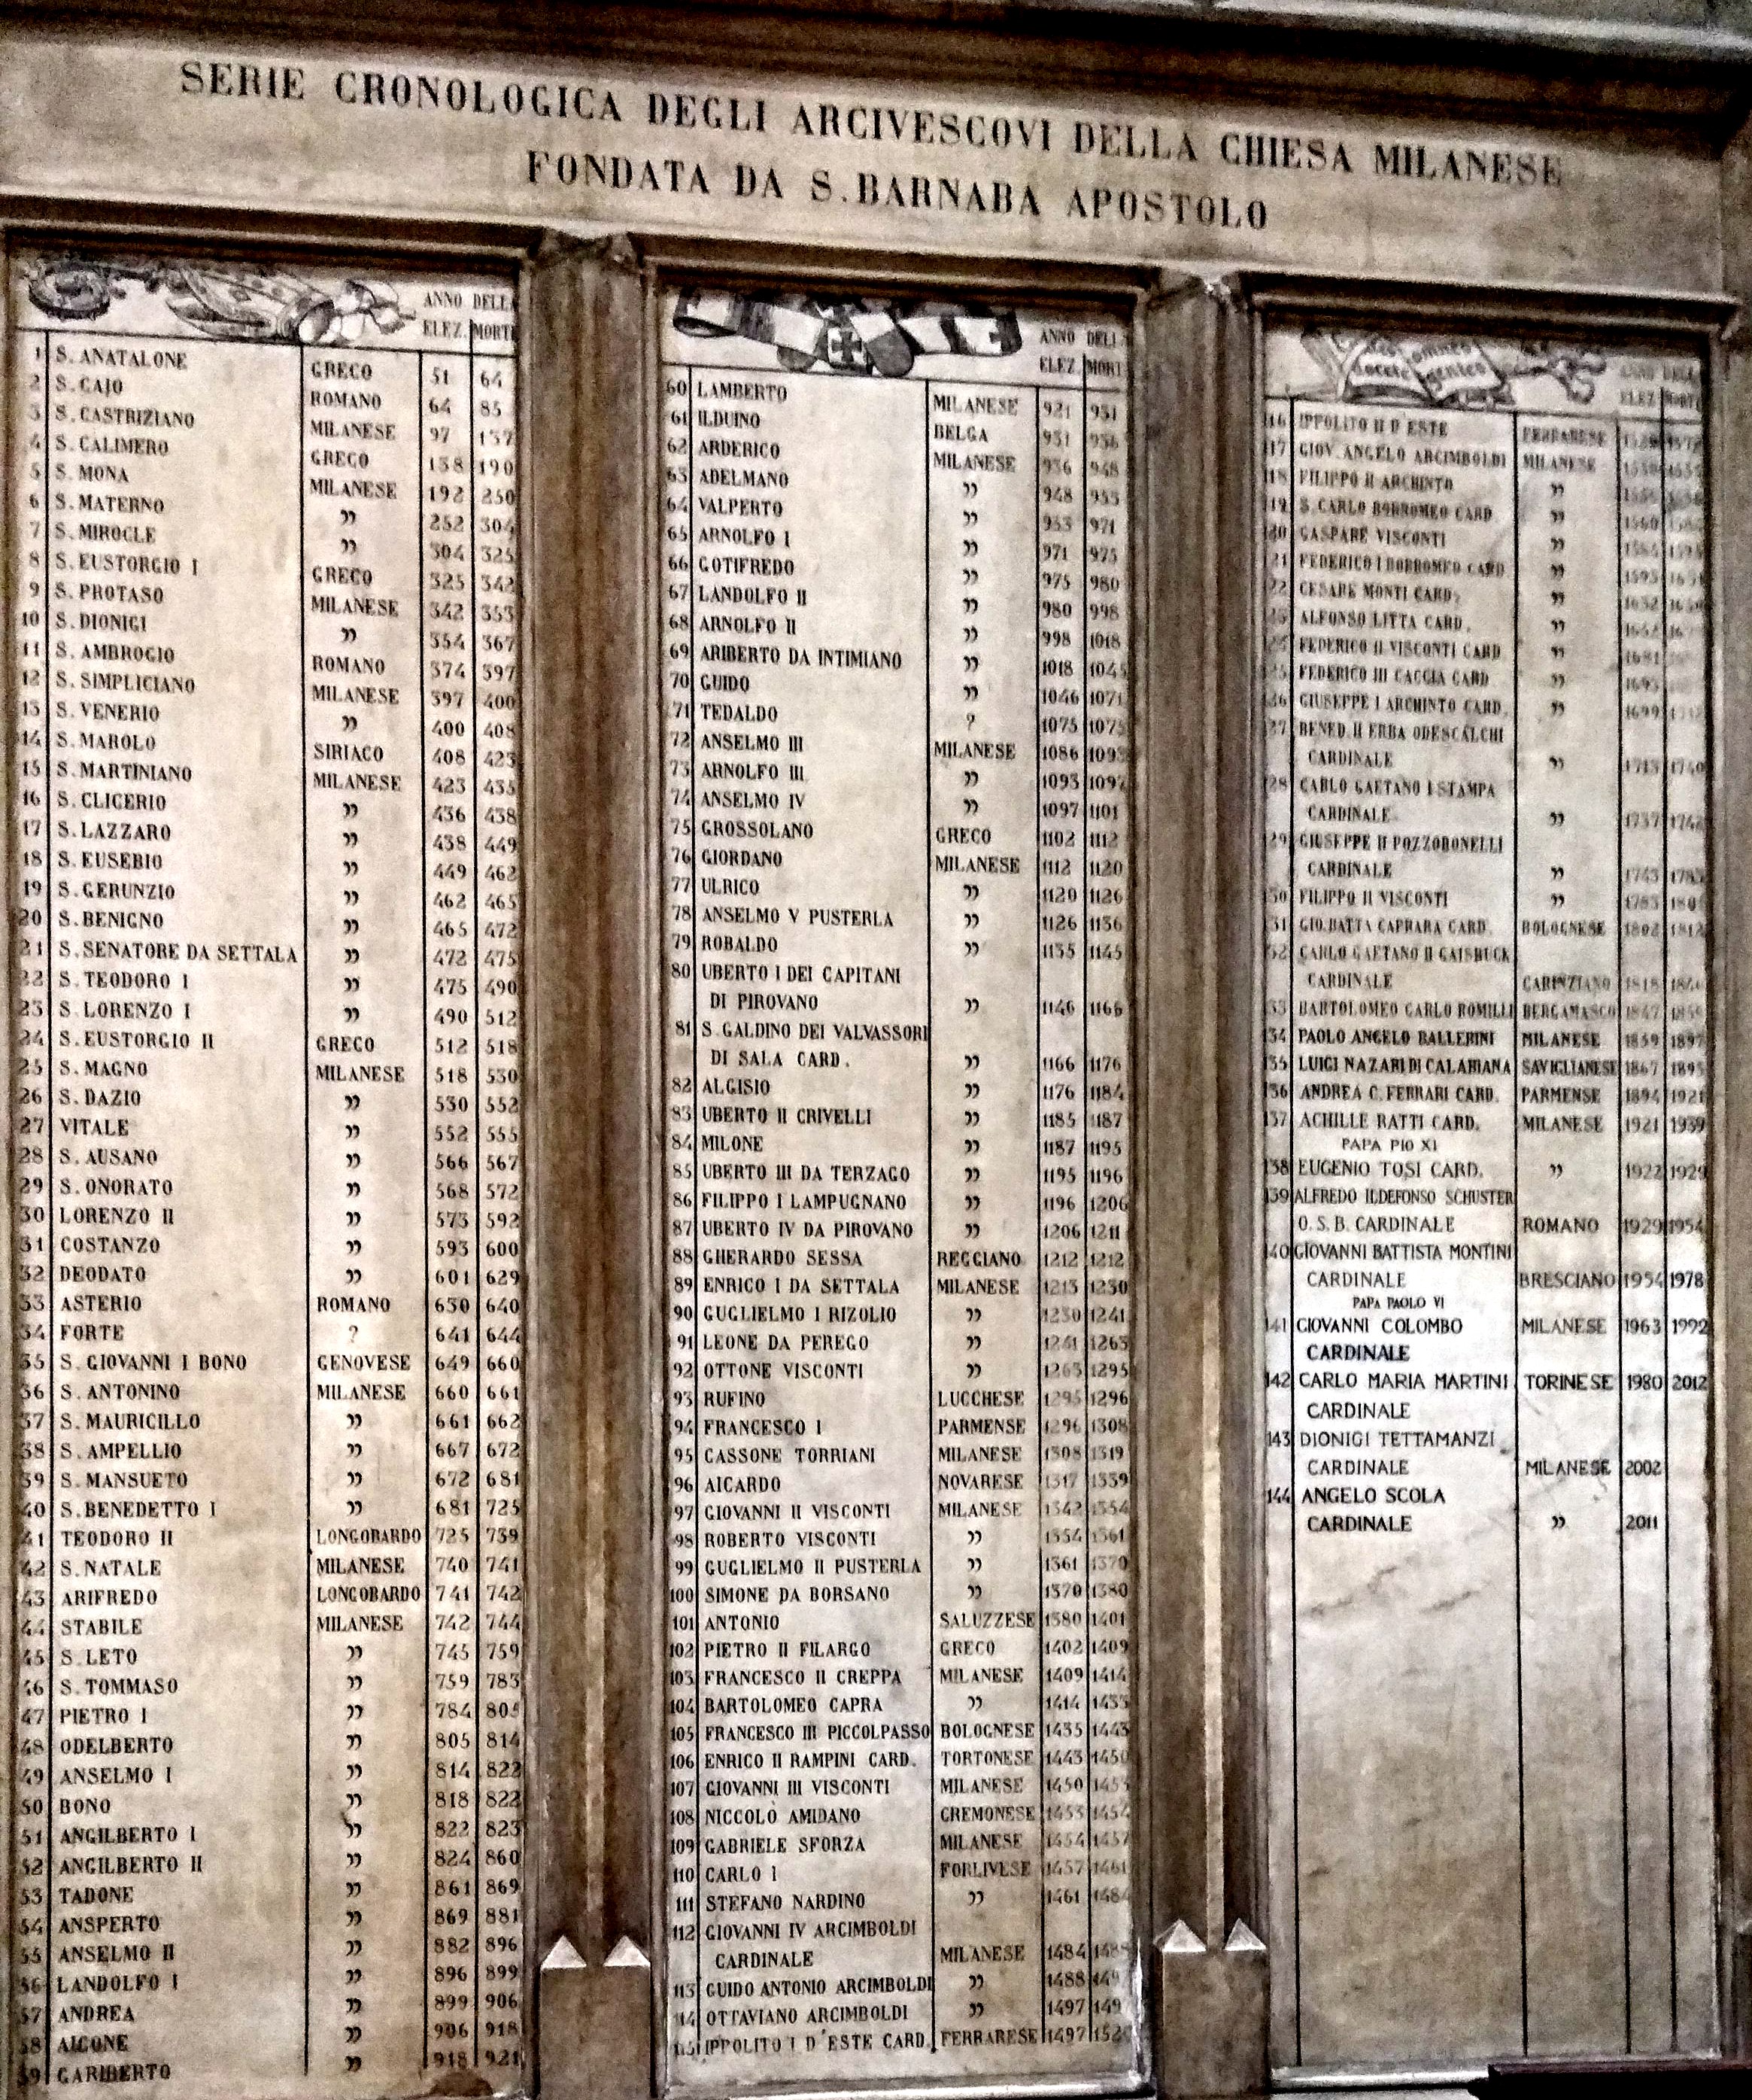 SERIE CRONOLOGICA DEGLI ARCIVESCOVI DELLA CHIESA MILANESE
FONDATA DA S.BARNABA APOSTOLO
ANNO DELLA
ELEZ. MORTE
1 S. ANATALONE GRECO 51 64
2 S. CAJO ROMANO 64 85
3 S. CASTRIZIANO MILANESE 97 137
4 S. CALIMERO GRECO 138 190
5 S. MONA MILANESE 192 250
6 S. MATERNO " 252 304
7 S. MIROCLE " 304 325
8 S. EUSTORGIO I GRECO 325 342
9 S. PROTASO MILANESE 342 353
10 S. DIONIGI " 354 367
11 S. AMBROGIO ROMANO 374 397
12 S. SIMPLICIANO MILANESE 397 400
13 S. VENERIO " 400 408
14 S. MAROLO SIRIACO 408 423
15 S. MARTINIANO MILANESE 423 435
16 S. CLICERIO " 436 438
17 S. LAZZARO " 438 449
18 S. EUSEBIO " 449 462
19 S. GERUNZIO " 462 465
20 S. BENIGNO " 465 472
21 S. SENATORE DA SETTALA " 472 475
22 S. TEODORO I " 475 490
23 S. LORENZO I " 490 512
24 S. EUSTORGIO II GRECO 512 518
25 S. MAGNO MILANESE 518 530
26 S. DAZIO " 530 552
27 VITALE " 552 555
28 S. AUSANO " 566 567
29 S. ONORATO " 568 572
30 LORENZO II " 573 592
31 COSTANZO " 593 600
32 DEODATO " 601 629
33 ASTERIO ROMANO 630 640
34 FORTE ? 641 644
35 S. GIOVANNI I BONO GENOVESE 649 660
36 S. ANTONINO MILANESE 660 661
37 S. MAURICILLO " 661 662
38 S. AMPELLIO " 667 672
39 S. MANSUETO " 672 681
40 S. BENEDETTO I " 681 725
41 TEODORO II LONGOBARDO 725 739
42 S. NATALE MILANESE 740 741
43 ARIFREDO LONGOBARDO 741 742
44 STABILE MILANESE 742 744
45 S. LETO " 745 759
46 S. TOMMASO " 759 783
47 PIETRO I " 784 805
48 ODELBERTO " 805 814
49 ANSELMO I " 814 822
50 BONO " 818 822
51 ANGILBERTO I " 822 823
52 ANGILBERTO II " 824 860
53 TADONE " 861 869
54 ANSPERTO " 869 881
55 ANSELMO II " 882 896
56 LANDOLFO I " 896 899
57 ANDREA " 899 906
58 AICONE " 906 918
59 GARIBERTO " 918 921
ANNO DELL
ELEZ. MORT
60 LAMBERTO MILANESE 921 931
61 ILDUINO BELGA 931 936
62 ARDERICO MILANESE 936 948
63 ADELMANO " 948 953
64 VALPERTO " 953 971
65 ARNOLFO I " 971 975
66 GOTIFREDO " 975 980
67 LANDOLFO II " 980 998
68 ARNOLFO II " 998 1018
69 ARIBERTO DA INTIMIANO " 1018 1045
70 GUIDO " 1046 1071
71 TEDALDO ? 1075 1075
72 ANSELMO III MILANESE 1086 1093
73 ARNOLFO III " 1093 1097
74 ANSELMO IV " 1097 1101
75 GROSSOLANO GRECO 1102 1112
76 GIORDANO MILANESE 1112 1120
77 ULRICO " 1120 1126
78 ANSELMO V PUSTERLA " 1126 1136
79 ROBALDO " 1135 1145
80 UBERTO I DEI CAPITANI
DI PIROVANO " 1146 1166
81 S. GALDINO DEI VALVASSORI
DI SALA CARD. " 1166 1176
82 ALGISIO " 1176 1184
83 UBERTO II CRIVELLI " 1185 1187
84 MILONE " 1187 1195
85 UBERTO III DA TERZAGO " 1195 1196
86 FILIPPO I LAMPUGNANO " 1196 1206
87 UBERTO IV DA PIROVANO " 1206 1211
88 GHERARDO SESSA REGGIANO 1212 1212
89 ENRICO I DA SETTALA MILANESE 1213 1230
90 GUGLIELMO I RIZOLIO " 1230 1241
91 LEONE DA PEREGO " 1241 1263
92 OTTONE VISCONTI " 1263 1295
93 RUFINO LUCCHESE 1295 1296
94 FRANCESCO I PARMENSE 1296 1308
95 CASSONE TORRIANI MILANESE 1308 1319
96 AICARDO NOVARESE 1317 1339
97 GIOVANNI II VISCONTI MILANESE 1342 1354
98 ROBERTO VISCONTI " 1354 1361
99 GUGLIELMO II PUSTERLA " 1361 1370
100 SIMONE DA BORSANO " 1370 1380
101 ANTONIO SALUZZESE 1380 1401
102 PIETRO II FILARGO GRECO 1402 1409
103 FRANCESCO II CREPPA MILANESE 1409 1414
104 BARTOLOMEO CAPRA " 1414 1433
105 FRANCESCO III PICCOLPASSO BOLOGNESE 1435 1443
106 ENRICO II RAMPINI CARD. TORTONESE 1443 1450
107 GIOVANNI III VISCONTI MILANESE 1450 1453
108 NICCOLÒ AMIDANO CREMONESE 1453 1454
109 GABRIELE SFORZA MILANESE 1454 1457
110 CARLO I FORLIVESE 1457 1461
111 STEFANO NARDINO " 1461 1484
112 GIOVANNI IV ARCIMBOLDI
CARDINALE MILANESE 1484
113 GUIDO ANTONIO ARCIMBOLDI " 1488
114 OTTAVIANO ARCIMBOLDI " 1497
115 IPPOLITO I D'ESTE CARD. FERRARESE 1497
docete omnes gentes
ANNO DELLA
ELEZ. MORTE
116 IPPOLITO II D'ESTE FERRARESE
117 GIOV. ANGELO ARCIMBOLDI MILANESE
118 FILIPPO II ARCHINTO "
119 S. CARLO BORROMEO CARD " 1560
120 GASPARE VISCONTI "
121 FEDERICO I BORROMEO CARD " 1595
122 CESARE MONTI CARD. " 1632
123 ALFONSO LITTA CARD. " 1652
124 FEDERICO II VISCONTI CARD " 1681
125 FEDERICO III CACCIA CARD " 1693
126 GIUSEPPE I ARCHINTO CARD. " 1699
127 BENED. II ERBA ODESCALCHI
CARDINALE " 1713 1740
128 CARLO GAETANO I STAMPA
CARDINALE " 1737 1742
129 GIUSEPPE II POZZOBONELLI
CARDINALE " 1743 1783
130 FILIPPO II VISCONTI " 1783
131 GIO.BATTA CAPRARA CARD. BOLOGNESE 1802
132 CARLO GAETANO II GAISRUCK
CARDINALE CARINZIANO 1818 1846
133 BARTOLOMEO CARLO ROMILLI BERGAMASCO 1847 1859
134 PAOLO ANGELO BALLERINI MILANESE 1859 1897
135 LUIGI NAZARI DI CALABIANA SAVIGLIANESE 1867 1893
136 ANDREA C. FERRARI CARD. PARMENSE 1894 1921
137 ACHILLE RATTI CARD. MILANESE 1921 1939
PAPA PIO XI
138 EUGENIO TOSI CARD. " 1922 1929
139 ALFREDO ILDEFONSO SCHUSTER
O. S. B. CARDINALE ROMANO 1929 1954
140 GIOVANNI BATTISTA MONTINI
CARDINALE BRESCIANO 1954 1978
PAPA PAOLO VI
141 GIOVANNI COLOMBO MILANESE 1963 1992
CARDINALE
142 CARLO MARIA MARTINI TORINESE 1980 2012
CARDINALE
143 DIONIGI TETTAMANZI
CARDINALE MILANESE 2002
144 ANGELO SCOLA
CARDINALE " 2011